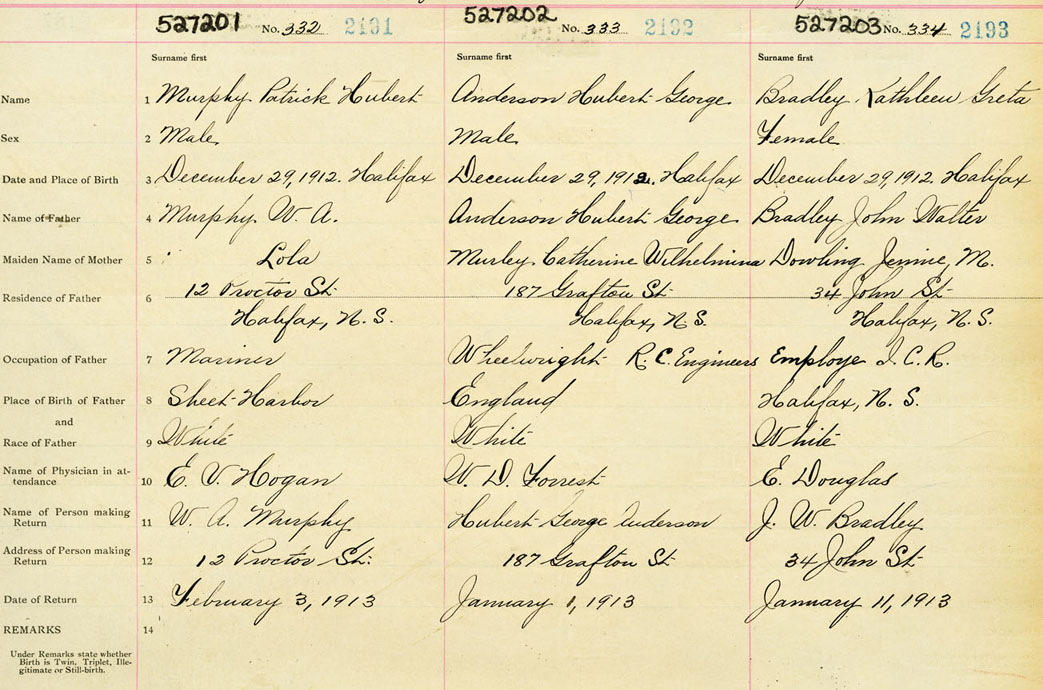 527201 No. 332 2191 527202 No. 333 2192 527203 No. 334 2193
Surname first Surname first Surname first
Name 1 Murphy Patrick Hubert Anderson Hubert George Bradley Kathleen Greta
Sex 2 Male Male Female
Date and Place of Birth 3 December 29, 1912. Halifax December 29, 1912. Halifax December 29, 1912. Halifax
Name of Father 4 Murphy W. A. Anderson Hubert George Bradley John Walter
Maiden Name of Mother 5 Lola Murley Catherine Wilhelmina Dowling Jennie, M.
Residence of Father 6 12 Proctor St. 187 Grafton St. 34 John St.
Halifax, N.S. Halifax, N.S. Halifax, N.S.
Occupation of Father 7 Mariner Wheelwright R.C. Engineers Employe I.C.R.
Place of Birth of Father 8 Sheet Harbor England Halifax, N.S.
and
Race of Father 9 White White White
Name of Physician in at-
tendance 10 E. V. Hogan W. D. Forrest E. Douglas
Name of Person making
Return 11 W. A. Murphy Hubert George Anderson J. W. Bradley
Address of Person making
Return 12 12 Proctor St. 187 Grafton St. 34 John St.
Date of Return 13 February 3, 1913 January 1, 1913 January 11, 1913
REMARKS 14
Under Remarks state whether
Birth is Twin, Triplet, Ille-
gitimate or Still-birth.